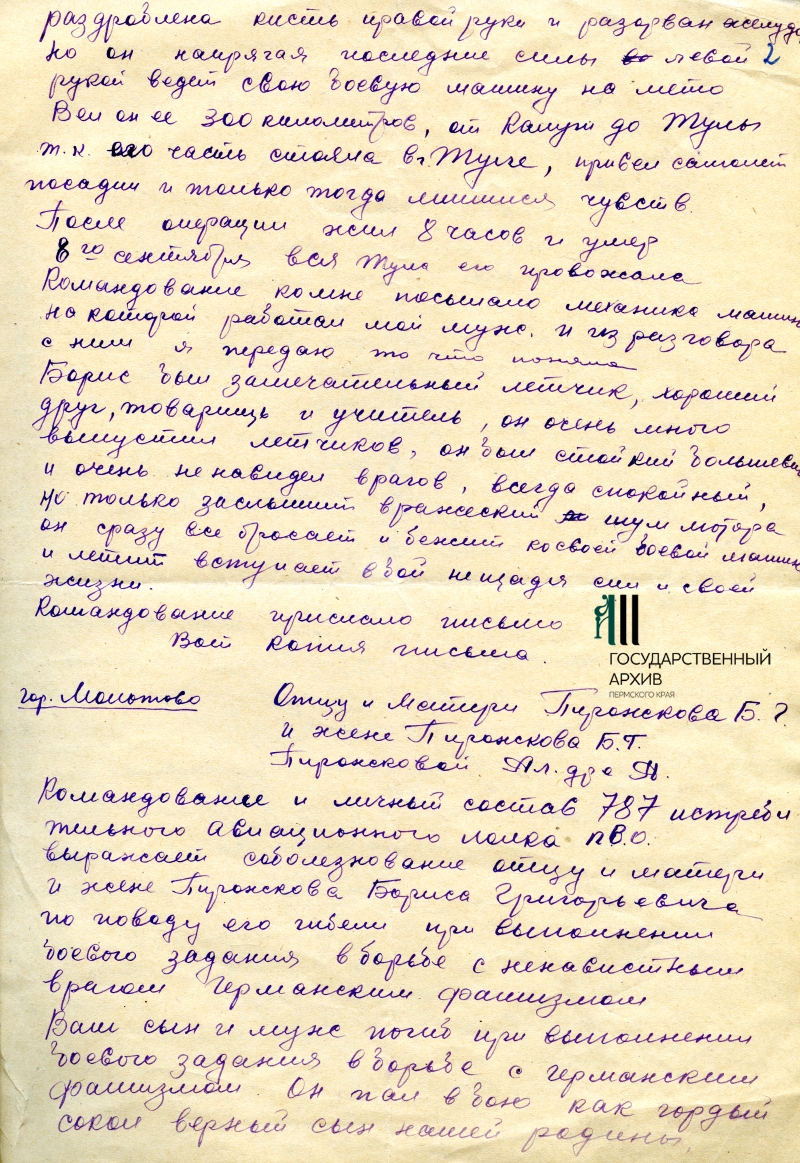 раздроблена кисть правой руки и разорван желуд
но он напрягая последние силы левой 2
рукой ведет свою боевую машину на место
Вел он ее 300 километров, от Калуги до Тулы
т.к. его часть стояла в г. Туле, привел самолет
посадил и только тогда лишился чувств.
После операции жил 8 часов и умер
8го сентября вся Тула его провожала
Командование ко мне посылало механика машин
на которой работал мой муж. и из разговора
с ним я передаю то что поняла
Борис был замечательный летчик, хороший
друг, товарищь и учитель, он очень много
выпустил летчиков, он был стойкий большеви
и очень ненавидел врагов, всегда спокойный,
но только заслышит вражеский шум мотора
он сразу все бросает и бежит к своей боевой машин
и летит вступает в бой не щадя сил и своей
жизни.
Командование прислало письмо
Вот копия письма.
ГОСУДАРСТВЕННЫЙ
АРХИВ
ПЕРМСКОГО КРАЯ
гор. Молотово
Отцу и Матери Пирожкова Б. Г.
и жене Пирожкова Б.Г.
Пирожковой Ал.дре
Командование и личный состав 787 истреби
тельного авиационного полка ПВО.
выражает соболезнование отцу и матери
и жене Пирожкова Бориса Григорьевича
по поводу его гибели при выполнении
боевого задания в борьбе с ненавистным
врагом германским фашизмом
Ваш сын и муж погиб при выполнении
боевого задания в борьбе с германским
фашизмом. Он пал в бою как гордый
сокол верный сын нашей родины.